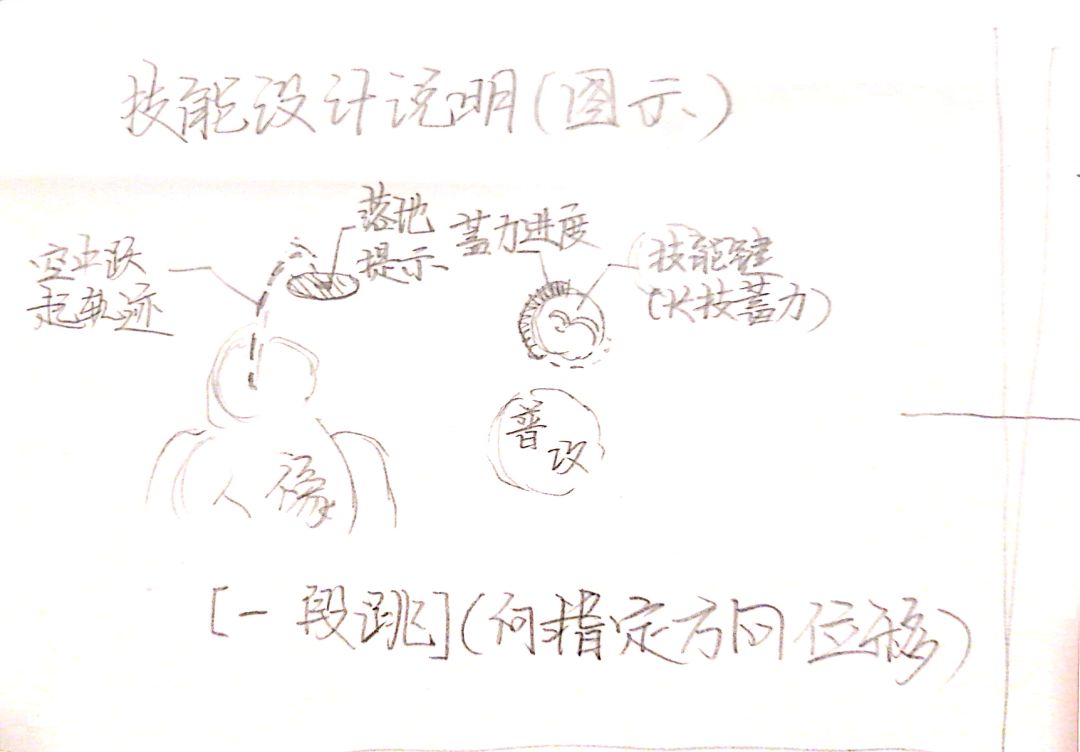 技能设计说明(图示)
空中跃
起轨迹
落地
提示
蓄力进度
技能键
(长按蓄力)
普
攻
人像
[一段跳](向指定方向位移)